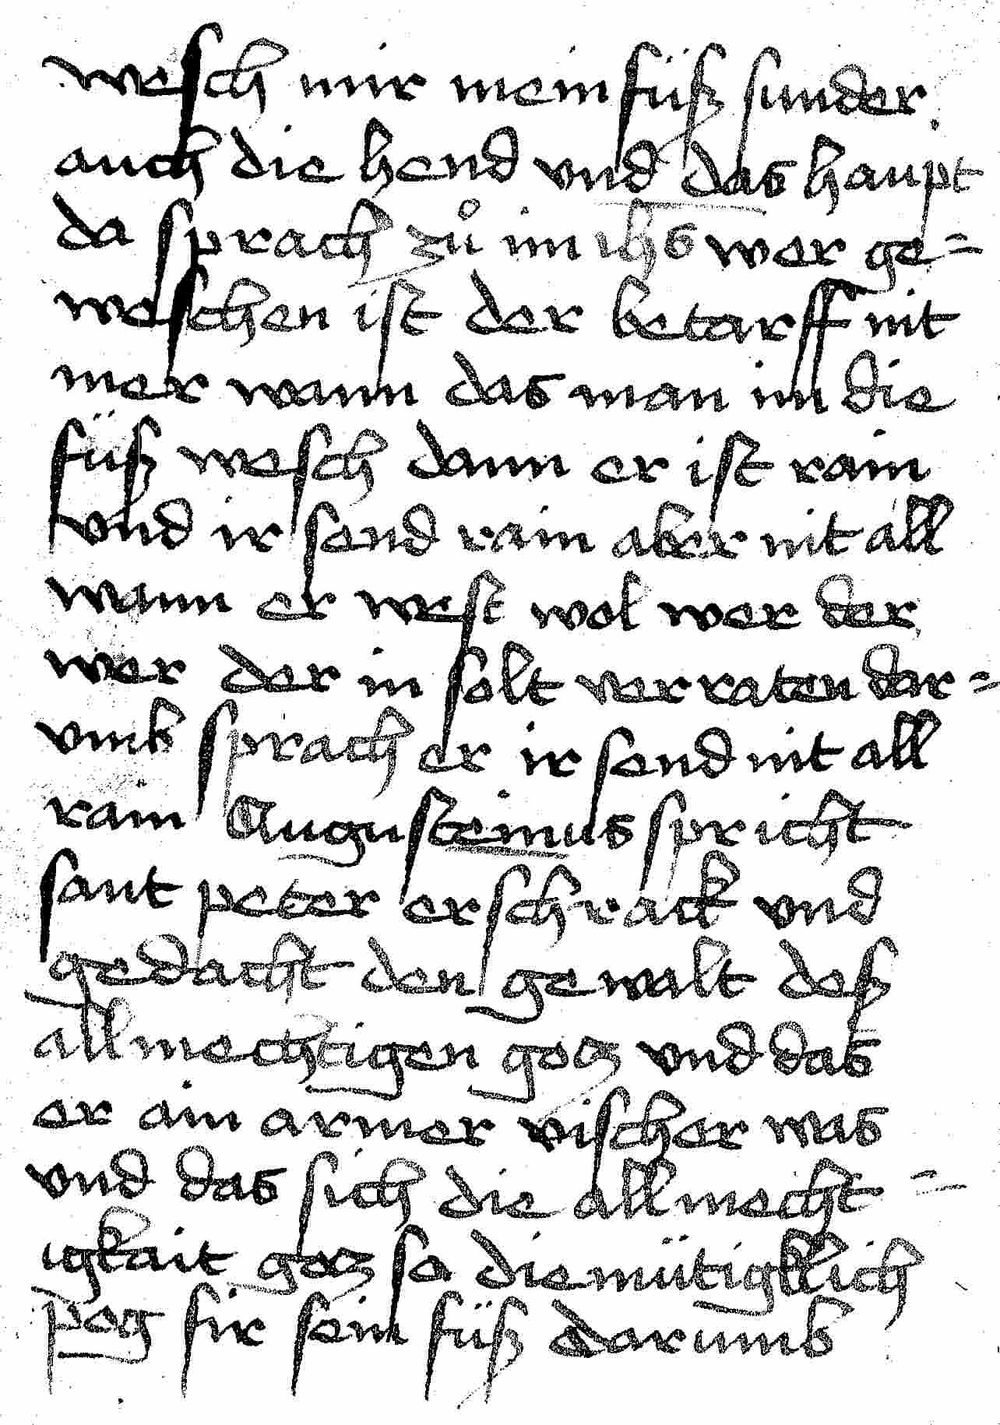 wesch mir mein füß sunder
auch die hend vnd das haupt
da sprach zů im ihs wer ge=
weschen ist der betarff nit
mer wann das man im die
füß wesch dann er ist rain
vnd ir send rain aber nit all
wann er west wol wer der
wer der in solt verraten dar=
vmb sprach er ir send nit all
rain Augusteinus spricht
sant peter erschrack vnd
gedacht den gewalt deß
allmechtigen gotz vnd das
er ain armer vischer was
vnd das sich die allmecht=
igkait gotz so diemütigklich
pog für sein füß darumb